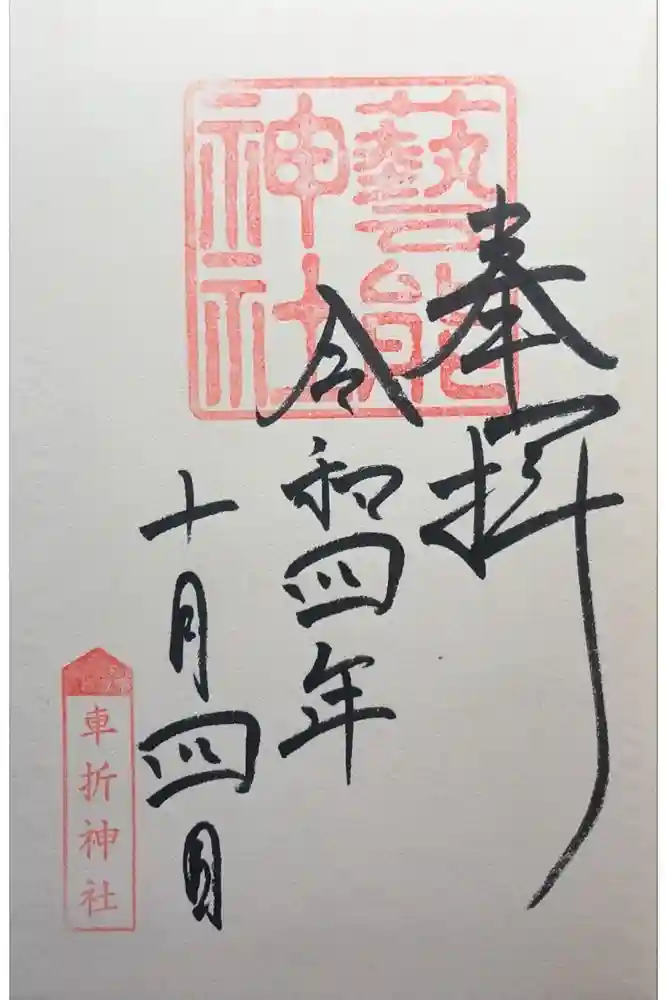 奉拝
藝能
神社
令和四年
十月四日
車折神社